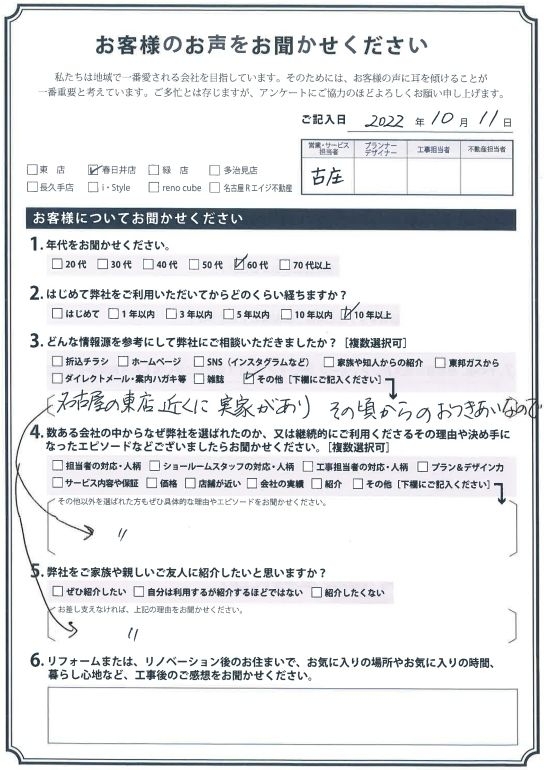 お客様のお声をお聞かせください
私たちは地域で一番愛される会社を目指しています。そのためには、お客様の声に耳を傾けることが
一番重要と考えています。ご多忙とは存じますが、アンケートにご協力のほどよろしくお願い申し上げます。
ご記入日 2022 年 10 月 11 日
営業・サービス担当者 プランナーデザイナー 工事担当者 不動産担当者
古庄
□東 店 ☑春日井店 □緑 店 □多治見店
□長久手店 □i・Style □reno cube □名古屋Rエイジ不動産
お客様についてお聞かせください
1. 年代をお聞かせください。
□20代 □30代 □40代 □50代 ☑60代 □70代以上
2. はじめて弊社をご利用いただいてからどのくらい経ちますか？
□はじめて □1年以内 □3年以内 □5年以内 □10年以内 ☑10年以上
3. どんな情報源を参考にして弊社にご相談いただきましたか？［複数選択可］
□折込チラシ □ホームページ □SNS（インスタグラムなど） □家族や知人からの紹介 □東邦ガスから
□ダイレクトメール・案内ハガキ等 □雑誌 ☑その他［下欄にご記入ください］
名古屋の東店近くに実家があり その頃からのおつきあいなので
4. 数ある会社の中からなぜ弊社を選ばれたのか、又は継続的にご利用くださるその理由や決め手に
なったエピソードなどございましたらお聞かせください。［複数選択可］
□担当者の対応・人柄 □ショールームスタッフの対応・人柄 □工事担当者の対応・人柄 □プラン＆デザイン力
□サービス内容や保証 □価格 □店舗が近い □会社の実績 □紹介 □その他［下欄にご記入ください］
その他以外を選ばれた方もぜひ具体的な理由やエピソードをお聞かせください。
〃
5. 弊社をご家族や親しいご友人に紹介したいと思いますか？
□ぜひ紹介したい □自分は利用するが紹介するほどではない □紹介したくない
お差し支えなければ、上記の理由をお聞かせください。
〃
6. リフォームまたは、リノベーション後のお住まいで、お気に入りの場所やお気に入りの時間、
暮らし心地など、工事後のご感想をお聞かせください。